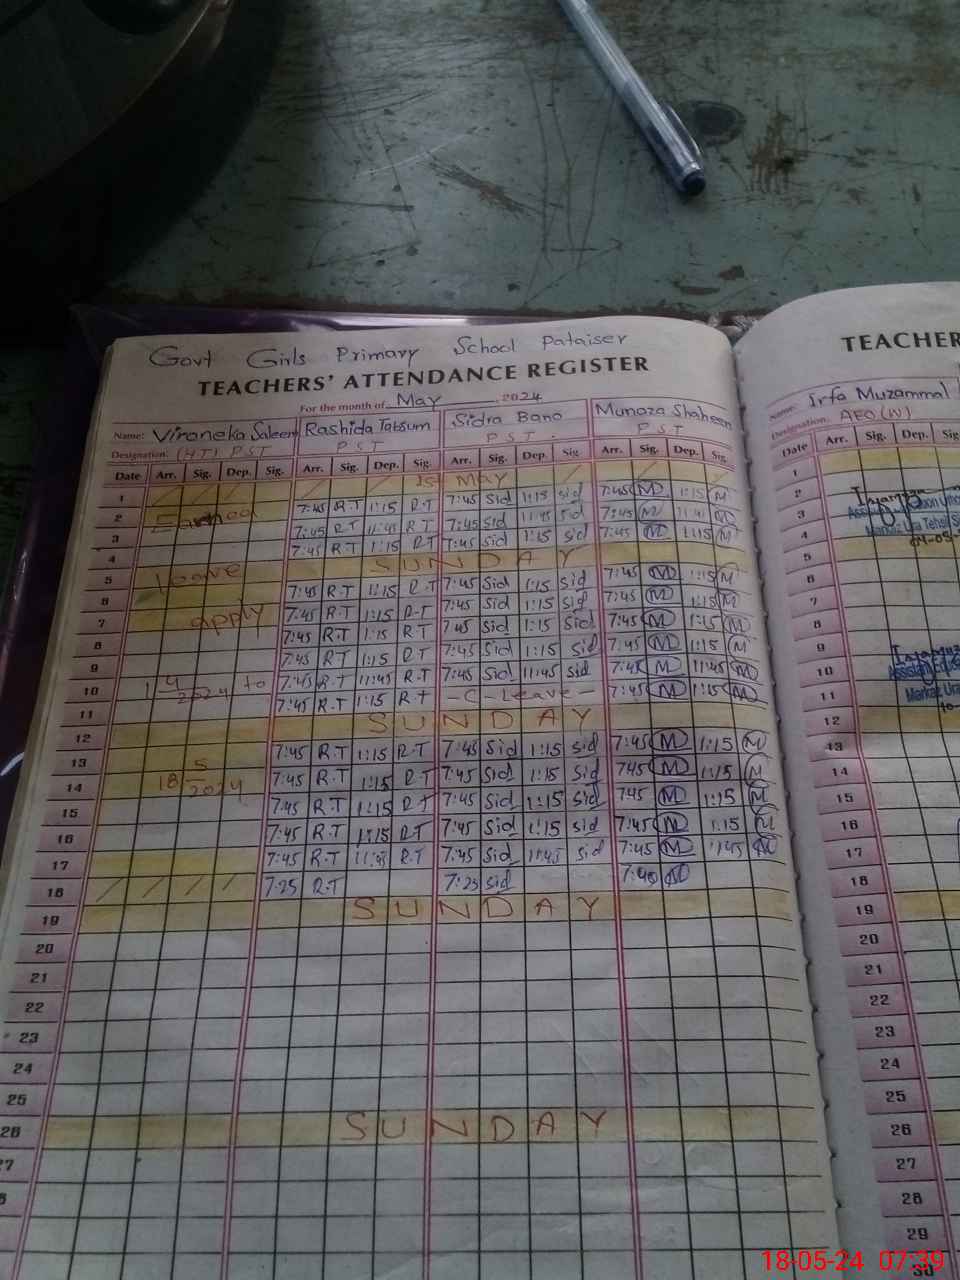 Govt Girls Primary School Pataiser
TEACHERS' ATTENDANCE REGISTER
For the month of May, 2024
Name: Vironeka Saleem Rashida Tabsum Sidra Bano Munaza Shaheen
Designation: (HT) PST PST PST. PST
Date Arr. Sig. Dep. Sig. Arr. Sig. Dep. Sig. Arr. Sig. Dep. Sig Arr. Sig. Dep.
1 1st May
2 7:45 R.T 1:15 R.T 7:45 Sid 1:15 sid 7:45 M 1:15 M
3 7:45 R.T 11:45 R.T 7:45 sid 11:45 sid 7:45 M M
4 7:45 R.T 1:15 R.T 7:45 Sid 1:15 sid 7:45 M 1:15 M
5 SUNDAY
leave
6 7:45 R.T 1:15 R.T 7:45 Sid 1:15 sid 7:45 M 1:15 M
7 apply 7:45 R.T 1:15 R.T 7:45 sid 1:15 sid 7:45 M 1:15 M
8 7:45 R.T 1:15 R.T 7:45 Sid 1:15 Sid 7:45 M 1:15 M
9 7:45 R.T 1:15 R.T 7:45 Sid 1:15 sid 7:45 M 1:15 M
10 1 4/2024 to 7:45 R.T 11:45 R.T 7:45 Sid 11:45 sid 7:45 M 11:45 M
11 7:45 R.T 1:15 R.T - C - Leave - 7:45 M 1:15 M
12 SUNDAY
13 7:45 R.T 1:15 R.T 7:45 Sid 1:15 sid 7:45 M 1:15 M
14 18 5/2024 7:45 R.T 1:15 R.T 7:45 Sid 1:15 Sid 745 M 1:15 M
15 7:45 R.T 1:15 R.T 7:45 Sid 1:15 Sid 745 M 1:15 M
16 7:45 R.T 1:15 R.T 7:45 Sid 1:15 sid 7:45 M 1:15 M
17 7:45 R.T 11:45 R.T 7:45 Sid 11:45 sid 7:45 M 11:45 M
18 7:25 R.T 7:25 sid 7:40 M
19 SUNDAY
20
21
22
23
24
25
26 SUNDAY
27
TEACHER
Name: Irfa Muzammal
Designation: AEO(W)
Date Arr. Sig. Dep. Sig
1
2
3
4
5
6
7
8
9
10
11
12
13
14
15
16
17
18
19
20
21
22
23
24
25
26
27
28
29
30
18-05-24 07:39